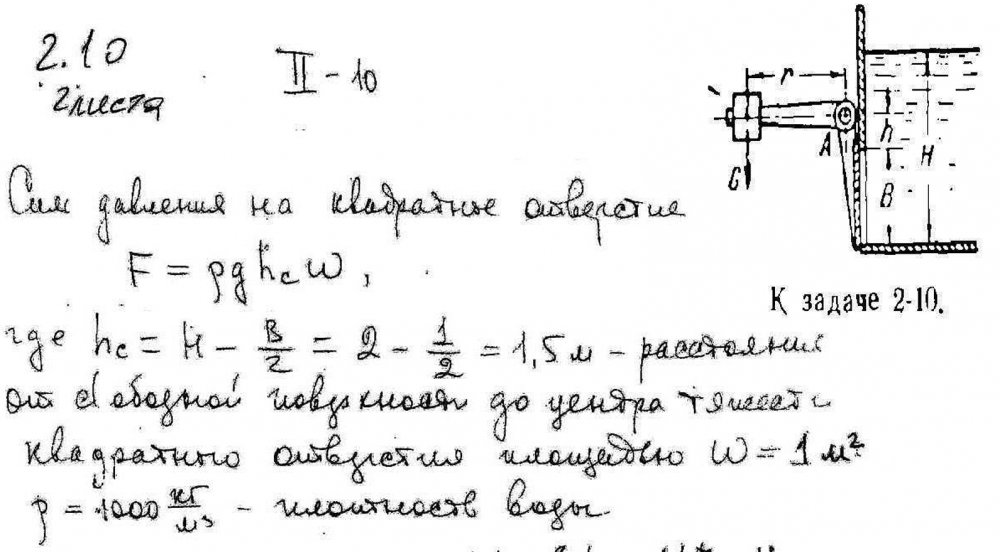 2.10
2 листа
II - 10
r
A
h
H
B
G
К задаче 2-10.
Сила давления на квадратное отверстие
F = ρghcω,
где hc = H - B/2 = 2 - 1/2 = 1,5 м - расстояния
от свободной поверхности до центра тяжести
квадратного отверстия площадью ω = 1 м²
ρ = 1000 кг/м³ - плотность воды